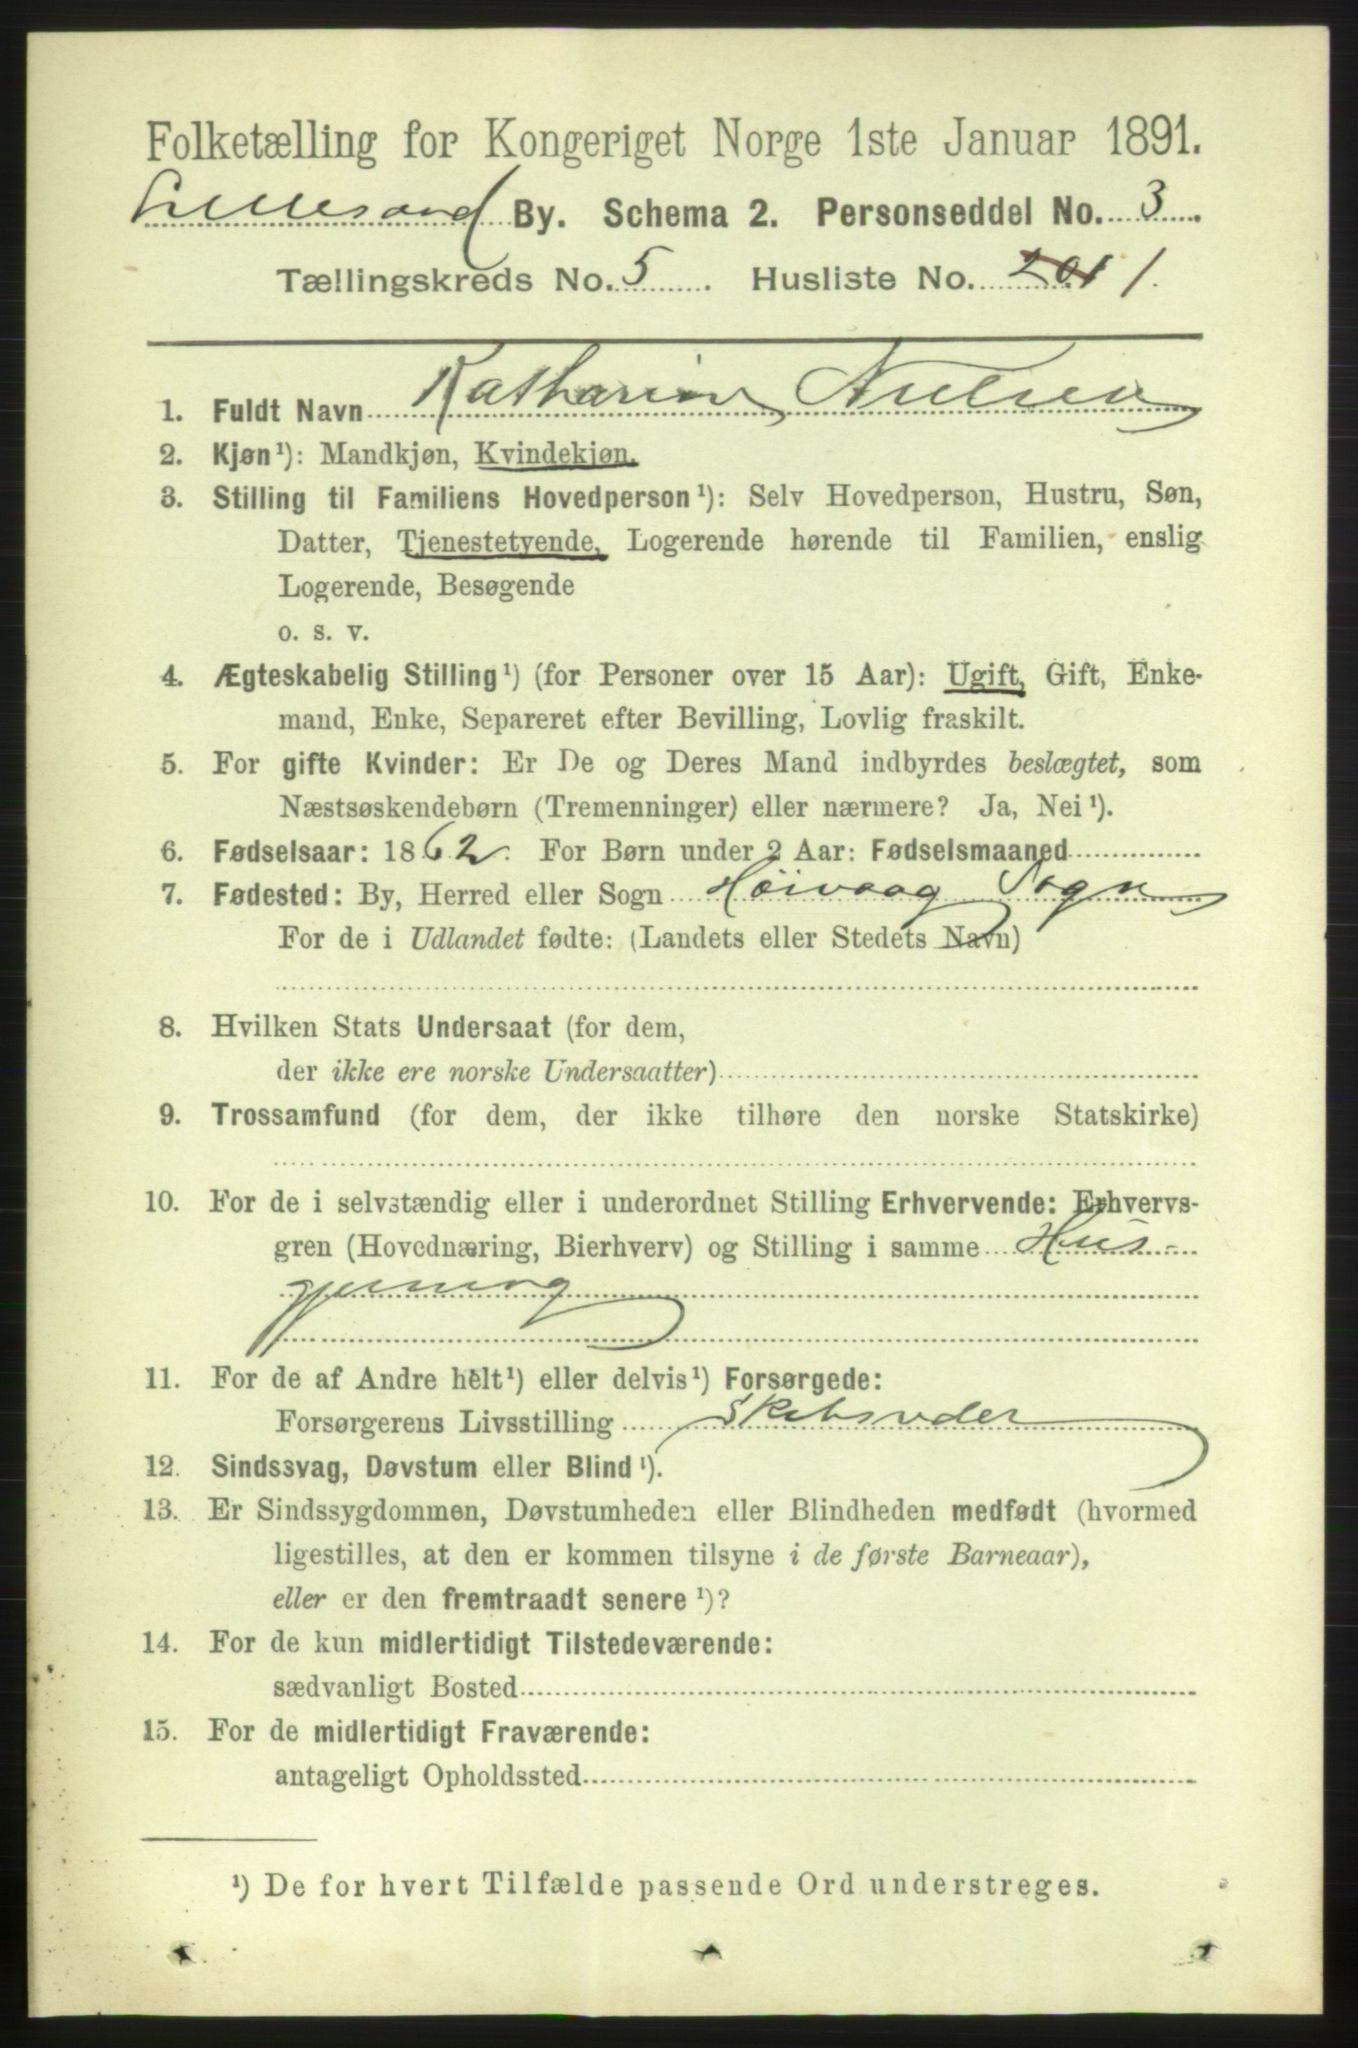 Folketælling for Kongeriget Norge 1ste Januar 1891.
Lillesand By. Schema 2. Personseddel No. 3.
Tællingskreds No. 5. Husliste No. 201 1.
1. Fuldt Navn Katharine Nielsen
2. Kjøn¹): Mandkjøn, Kvindekjøn.
3. Stilling til Familiens Hovedperson¹): Selv Hovedperson, Hustru, Søn,
Datter, Tjenestetyende, Logerende hørende til Familien, enslig
Logerende, Besøgende
o. s. v.
4. Ægteskabelig Stilling¹) (for Personer over 15 Aar): Ugift, Gift, Enke-
mand, Enke, Separeret efter Bevilling, Lovlig fraskilt.
5. For gifte Kvinder: Er De og Deres Mand indbyrdes beslægtet, som
Næstsøskendebørn (Tremenninger) eller nærmere? Ja, Nei¹).
6. Fødselsaar: 1862. For Børn under 2 Aar: Fødselsmaaned
7. Fødested: By, Herred eller Sogn Höivaag Sogn
For de i Udlandet fødte: (Landets eller Stedets Navn)
8. Hvilken Stats Undersaat (for dem,
der ikke ere norske Undersaatter)
9. Trossamfund (for dem, der ikke tilhøre den norske Statskirke)
10. For de i selvstændig eller i underordnet Stilling Erhvervende: Erhvervs-
gren (Hovednæring, Bierhverv) og Stilling i samme Hus-
gjerning
11. For de af Andre helt¹) eller delvis¹) Forsørgede:
Forsørgerens Livsstilling Skibsreder
12. Sindssvag, Døvstum eller Blind¹).
13. Er Sindssygdommen, Døvstumheden eller Blindheden medfødt (hvormed
ligestilles, at den er kommen tilsyne i de første Barneaar),
eller er den fremtraadt senere¹)?
14. For de kun midlertidigt Tilstedeværende:
sædvanligt Bosted
15. For de midlertidigt Fraværende:
antageligt Opholdssted
¹) De for hvert Tilfælde passende Ord understreges.